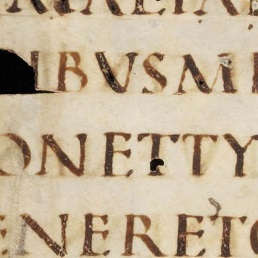 IBVSME
ONETTY
ENERETO